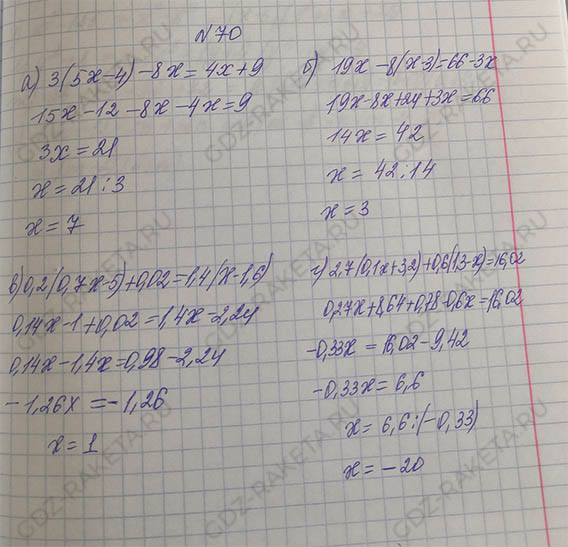 №70
а) 3(5x-4)-8x=4x+9
15x-12-8x-4x=9
3x=21
x=21:3
x=7
б) 19x-8(x-3)=66-3x
19x-8x+24+3x=66
14x=42
x=42:14
x=3
в) 0,2(0,7x-5)+0,02=1,4(x-1,6)
0,14x-1+0,02=1,4x-2,24
0,14x-1,4x=0,98-2,24
-1,26x=-1,26
x=1
г) 2,7(0,1x+3,2)+0,6(1,3-x)=16,02
0,27x+8,64+0,78-0,6x=16,02
-0,33x=16,02-9,42
-0,33x=6,6
x=6,6:(-0,33)
x=-20
GDZ-RAKETA.RU